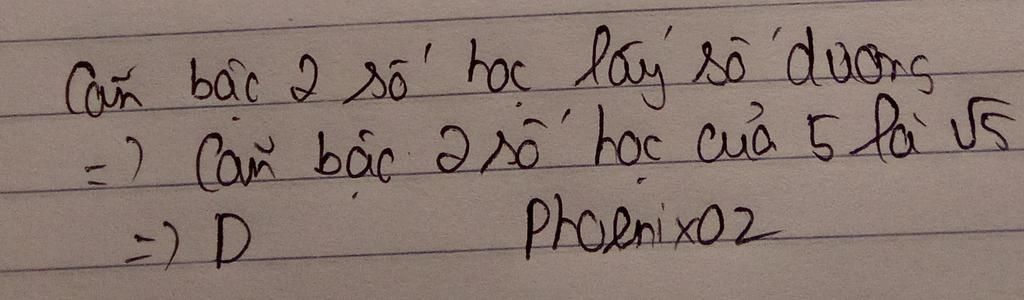 Căn bậc 2 số học lấy số dương
=) Căn bậc 2 số học của 5 là √5
=) D Phoenix02